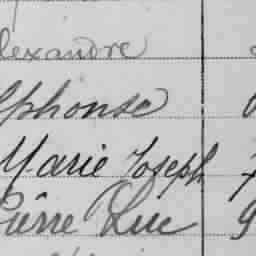 lexandre
lphonse
Marie Joseph 7
Pierre Luc 9